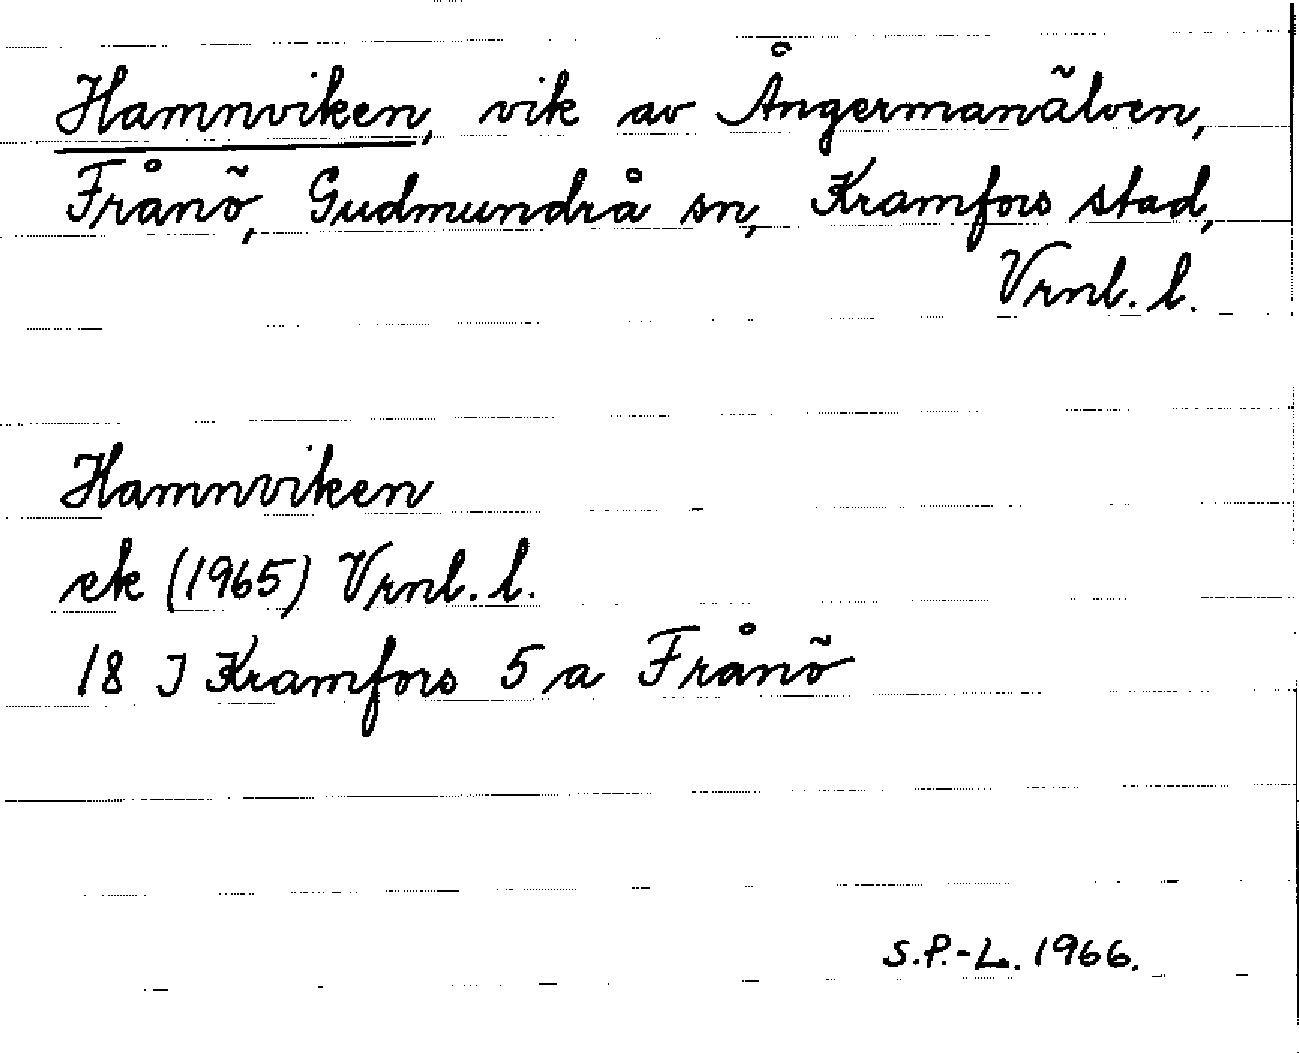 Hamnviken, vik av Ångermanälven,
Frånö, Gudmundrå sn, Kramfors stad,
Vrnl. l.
Hamnviken
ek (1965) Vrnl. l.
18 J Kramfors 5 a Frånö
S.P.-L. 1966.